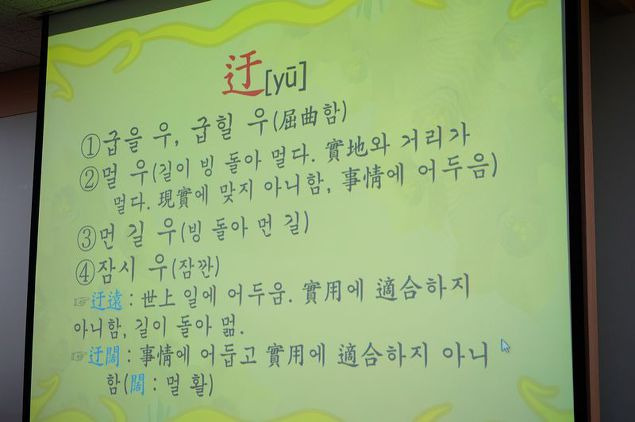 迂[yū]
①굽을 우, 굽힐 우(屈曲함)
②멀 우(길이 빙 돌아 멀다. 實地와 거리가
멀다. 現實에 맞지 아니함, 事情에 어두음)
③먼 길 우(빙 돌아 먼 길)
④잠시 우(잠깐)
☞迂遠 : 世上 일에 어두움. 實用에 適合하지
아니함, 길이 돌아 멂.
☞迂闊 : 事情에 어둡고 實用에 適合하지 아니
함(闊 : 멀 활)